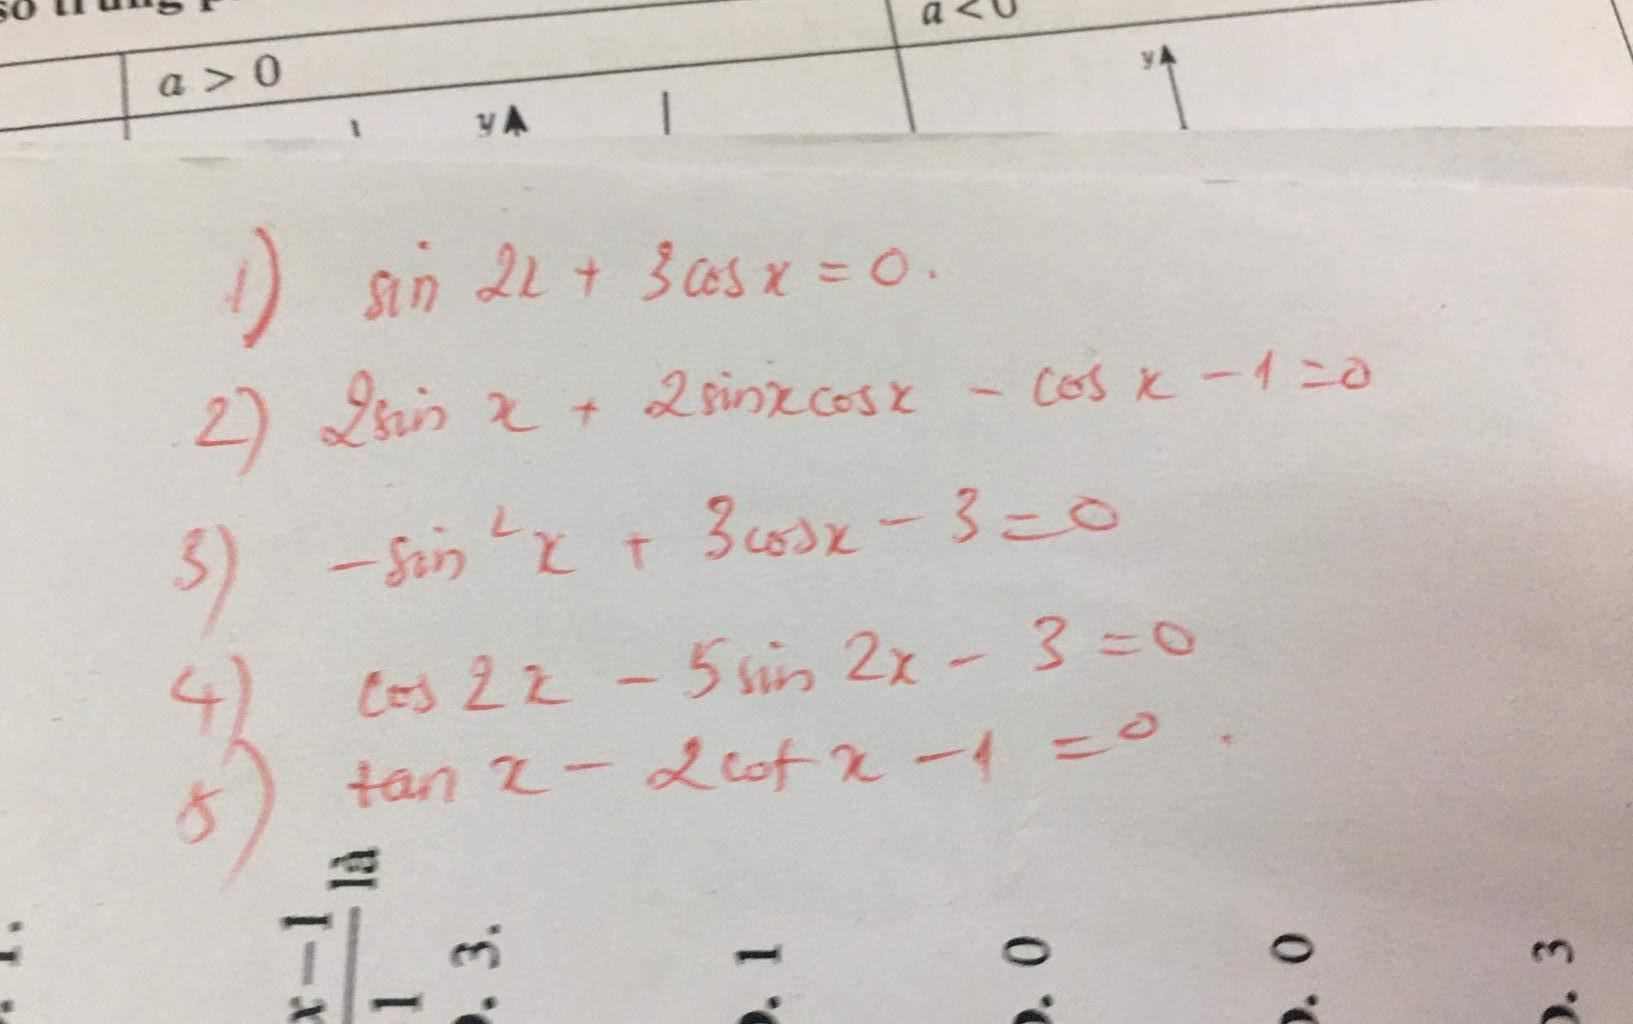 a < 0
a > 0
y
y
1) sin 2x + 3 cos x = 0.
2) 2 sin x + 2 sinx cosx - cos x - 1 = 0
3) - sin²x + 3 cosx - 3 = 0
4) cos 2x - 5 sin 2x - 3 = 0
5) tan x - 2 cot x - 1 = 0.
x-1
1
là
3.
1
0
0
3